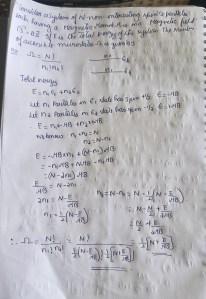 Consider a System of N-non-interacting spin ½ particles
each having a magnetic moment μ in a ext. Magnetic field
B = BẐ. If E is the total energy of the System. The Number
of accessible microstates is given by
Ω = N! / n₁! n₂!
Total energy
E = n₁E₁ + n₂E₂
Let n₁ Particles in E₁ state has spin +½ E₁ = -μB
Let n₂ Particles in E₂ state has spin -½ E₂ = μB
E = -n₁μB + n₂μB
n₁ + n₂ = N
n₂ = N - n₁
E = -μBn₁ + (N-n₁)μB
= -n₁μB + NμB - n₁μB
= (N - 2n₁) μB
E/μB = N - 2n₁
2n₁ = N - E/μB
n₁ = ½ (N - E/μB)
n₂ = N - n₁ = N - ½ (N - E/μB)
= N - N/2 + E/2μB
= N/2 + E/2μB
= ½ [N + E/μB]
∴ Ω = N! / n₁! n₂! = N! / ½ (N - E/μB)! ½ [N + E/μB]!